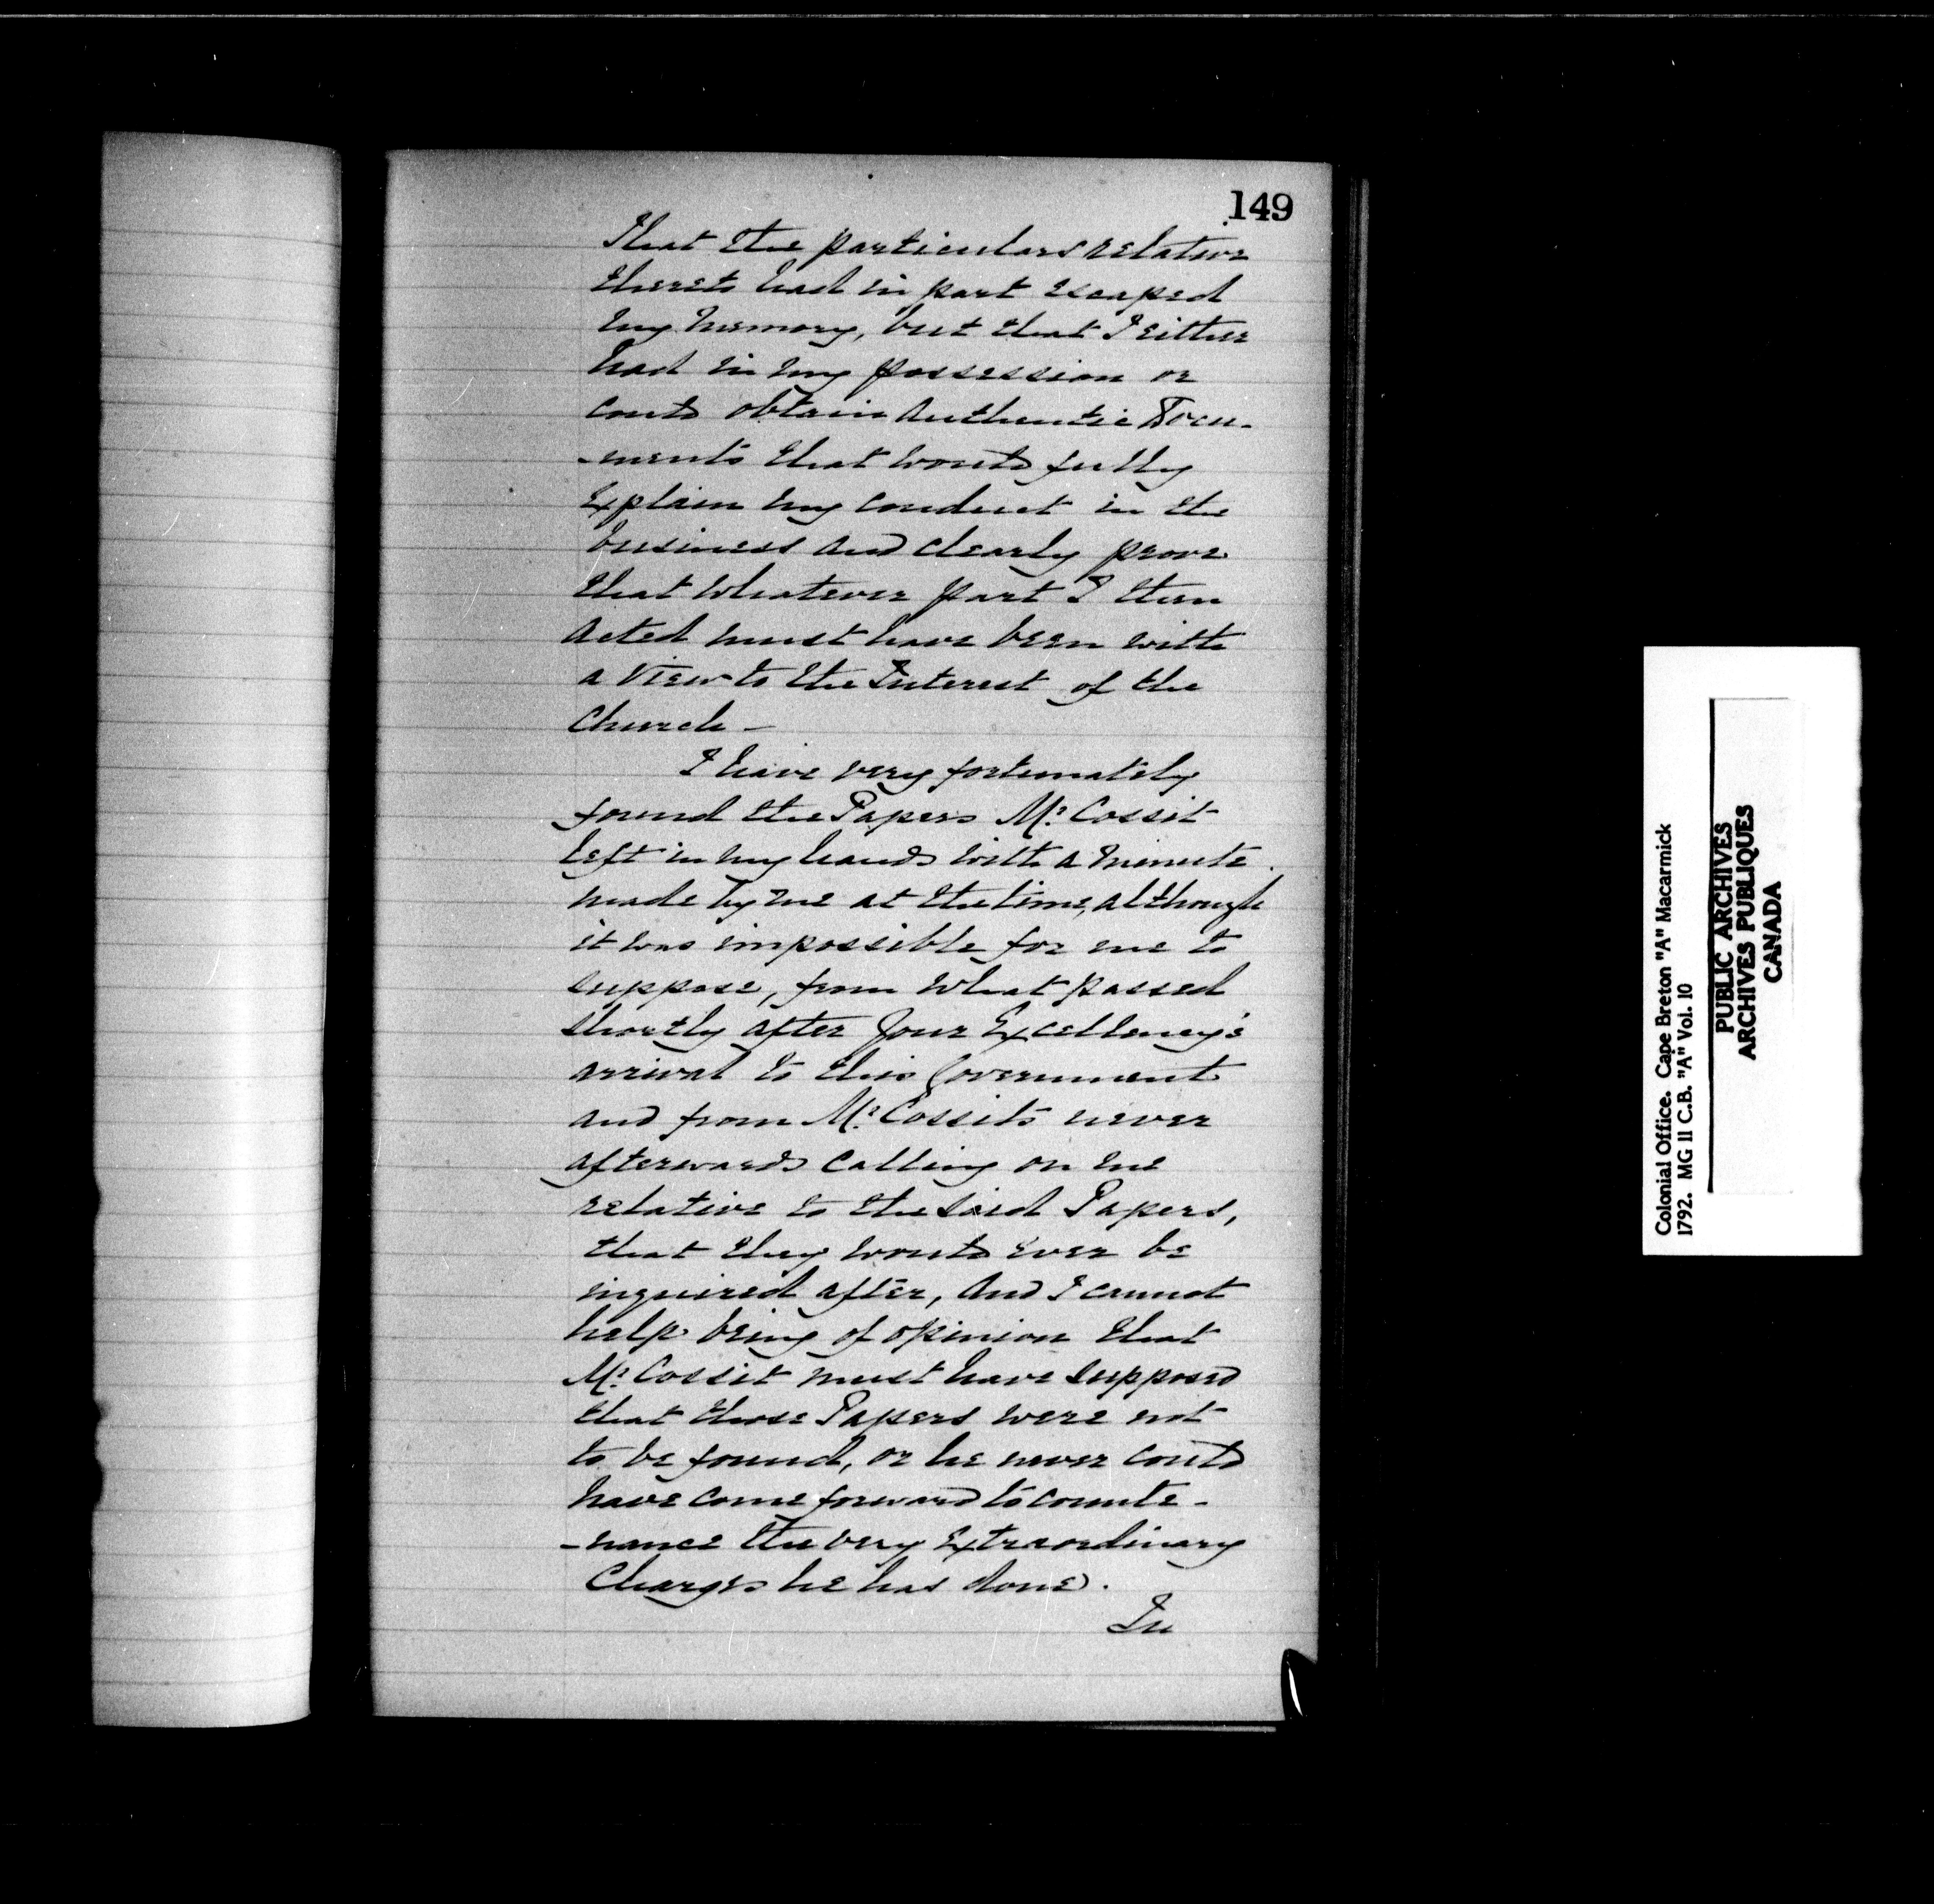 149
That the particulars relative
thereto had in part escaped
my memory, but that I either
had in my possession or
could obtain authentic Docu-
-ments that would fully
explain my conduct in the
business and clearly prove
that whatever part I then
acted must have been with
a view to the Interest of the
Church —
I have very fortunately
found the Papers Mr. Cossit
left in my hands with a minute
made by me at the time, although
it was impossible for me to
suppose, from what passed
shortly after Your Excellency's
arrival to this Government
and from Mr. Cossit's never
afterwards calling on me
relative to the said Papers,
that they would ever be
inquired after, and I cannot
help being of opinion that
Mr. Cossit must have supposed
that those Papers were not
to be found, or he never could
have come forward to counte-
-nance the very extraordinary
Charges he has done.
In
Colonial Office. Cape Breton "A" Macarmick
1792. MG 11 C.B. "A" Vol. 10
PUBLIC ARCHIVES
ARCHIVES PUBLIQUES
CANADA